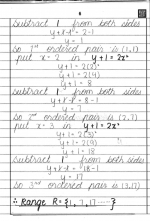 Subtract 1 from both sides
y+1-1=2-1
y=1
So 1st ordered pair is (1,1)
put x=2 in y+1=2x²
y+1=2(2)²
y+1=2(4)
y+1=8
Subtract 1 from both sides
y+1-1=8-1
y=7
So 2nd ordered pair is (2,7)
put x=3 in y+1=2x²
y+1=2(3)²
y+1=2(9)
y+1=18
Subtract 1 from both sides
y+1-1=18-1
y=17
So 3rd ordered pair is (3,17)
∴ Range R={1,7,17----}